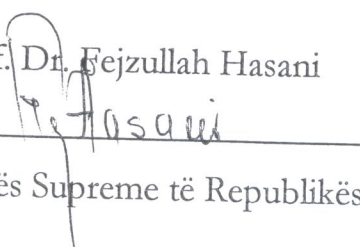 f. Dr. Fejzullah Hasani
Hasani
ës Supreme të Republikës